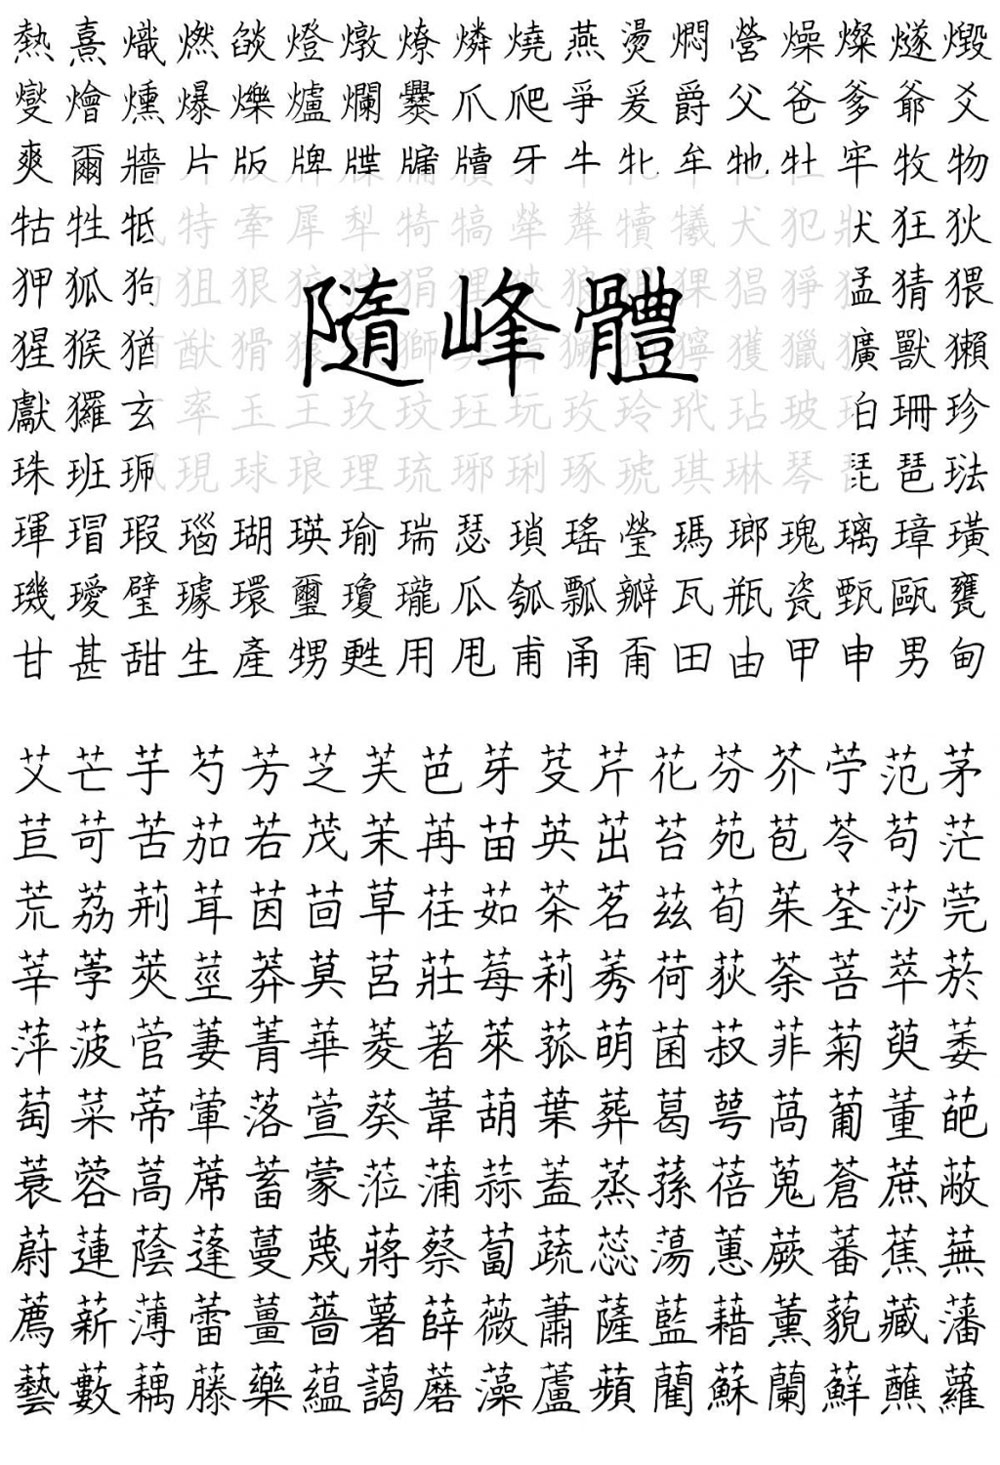 熱熹熾燃燄燈燉燎燐燒燕燙燜營燥燦燧燬
燮燴燻爆爍爐爛爨爪爬爭爰爵父爸爹爺爻
爽爾牆片版牌牒牖牘牙牛牝牟牠牡牢牧物
牯牲牴特牽犀犁犄犒犖犛犢犧犬犯狀狂狄
狎狐狗狙狠狼狽狷狸狹狼猓猖猙猛猜猥
猩猴猶猷猾猿獅獎獗獰獲獵獷獸獺
隨峰體
獻玀玄率玉王玖玟玨玩玫玲玳玷玻珀珊珍
珠班珮現球琅理琉琊琍琢琥琪琳琴琵琶琺
琿瑁瑕瑙瑚瑛瑜瑞瑟瑣瑤瑩瑪瑯瑰璃璋璜
璣璦璧璩環璽瓊瓏瓜瓠瓢瓣瓦瓶瓷甄甌甕
甘甚甜生產甥甦用甩甫甬甭田由甲申男甸
艾芒芋芍芳芝芙芭芽芟芹花芬芥苧范茅
苣苛苦茄若茂茉苒苗英茁苔苑苞苓苟茫
荒荔荊茸茵茴草荏茹茶茗茲荀茱荃莎莞
莘荸莢莖莽莫莒莊莓莉莠荷荻荼菩萃菸
萍菠菅萋菁華菱著萊菰萌菌菽菲菊萸萎
萄菜蒂葷落萱葵葦葫葉葬葛萼萵葡董葩
蓑蓉蒿蓆蓄蒙蒞蒲蒜蓋蒸蓀蓓蒐蒼蔗蔽
蔚蓮蔭蓬蔓蔑蔣蔡蔔蔬蕊蕩蕙蕨蕃蕉蕪
薦薪薄蕾薑薔薯薛薇蕭薩藍藉薰藐藏藩
藝藪藕藤藥蘊藹蘑藻蘆蘋藺蘇蘭蘚蘸蘿